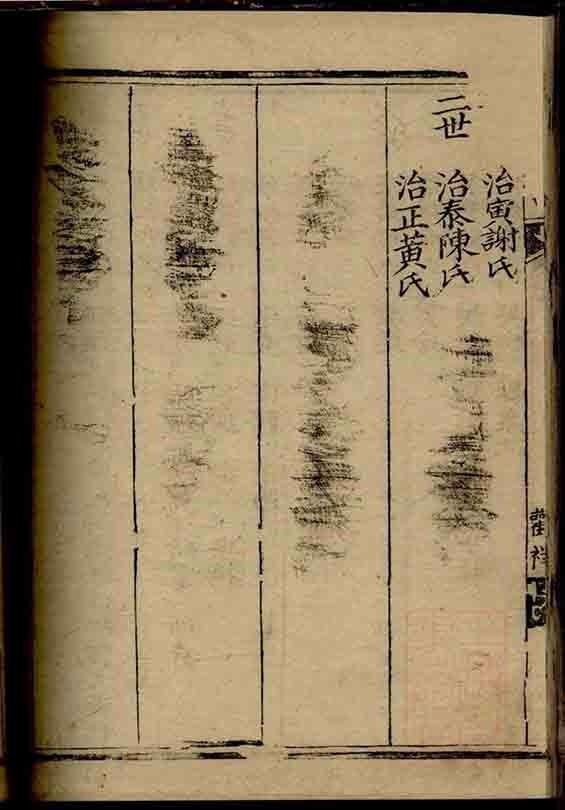 二世
治寅謝氏
治泰陳氏
治正黃氏